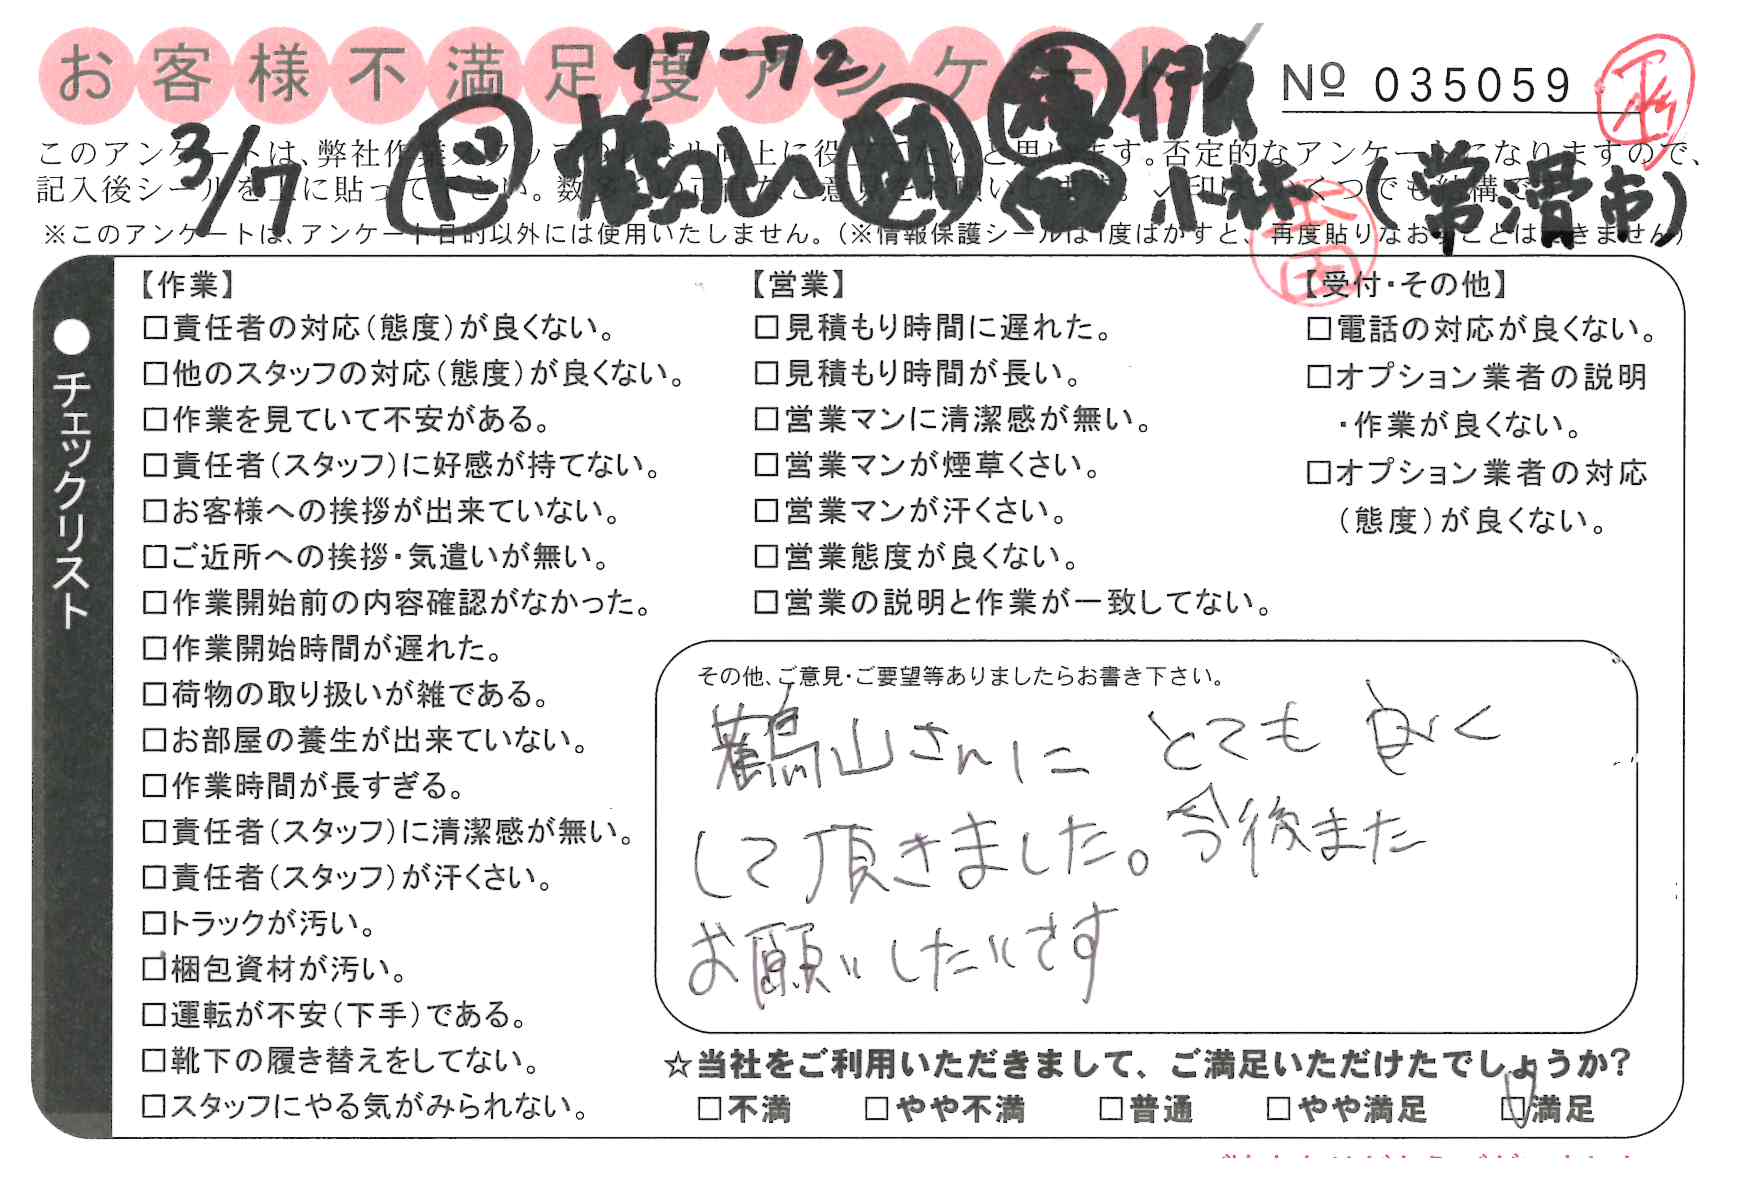 お客様不満足度アンケート
17-72
伊賀
№ 035059
3/7 ド 鶴山 助 小林 (常滑市)
このアンケートは、弊社作業スタッフの
記入後シールを上に貼って下さい。
※このアンケートは、アンケート目的以外には使用いたしません。(※情報保護シールは1度はがすと、再度貼りなおすことはできません)
●チェックリスト
【作業】
□責任者の対応(態度)が良くない。
□他のスタッフの対応(態度)が良くない。
□作業を見ていて不安がある。
□責任者(スタッフ)に好感が持てない。
□お客様への挨拶が出来ていない。
□ご近所への挨拶・気遣いが無い。
□作業開始前の内容確認がなかった。
□作業開始時間が遅れた。
□荷物の取り扱いが雑である。
□お部屋の養生が出来ていない。
□作業時間が長すぎる。
□責任者(スタッフ)に清潔感が無い。
□責任者(スタッフ)が汗くさい。
□トラックが汚い。
□梱包資材が汚い。
□運転が不安(下手)である。
□靴下の履き替えをしてない。
□スタッフにやる気がみられない。
【営業】
□見積もり時間に遅れた。
□見積もり時間が長い。
□営業マンに清潔感が無い。
□営業マンが煙草くさい。
□営業マンが汗くさい。
□営業態度が良くない。
□営業の説明と作業が一致してない。
【受付・その他】
□電話の対応が良くない。
□オプション業者の説明
・作業が良くない。
□オプション業者の対応
(態度)が良くない。
その他、ご意見・ご要望等ありましたらお書き下さい。
鶴山さんに とても 良く
して頂きました。今後また
お願いしたいです
☆当社をご利用いただきまして、ご満足いただけたでしょうか?
□不満 □やや不満 □普通 □やや満足 ☑満足